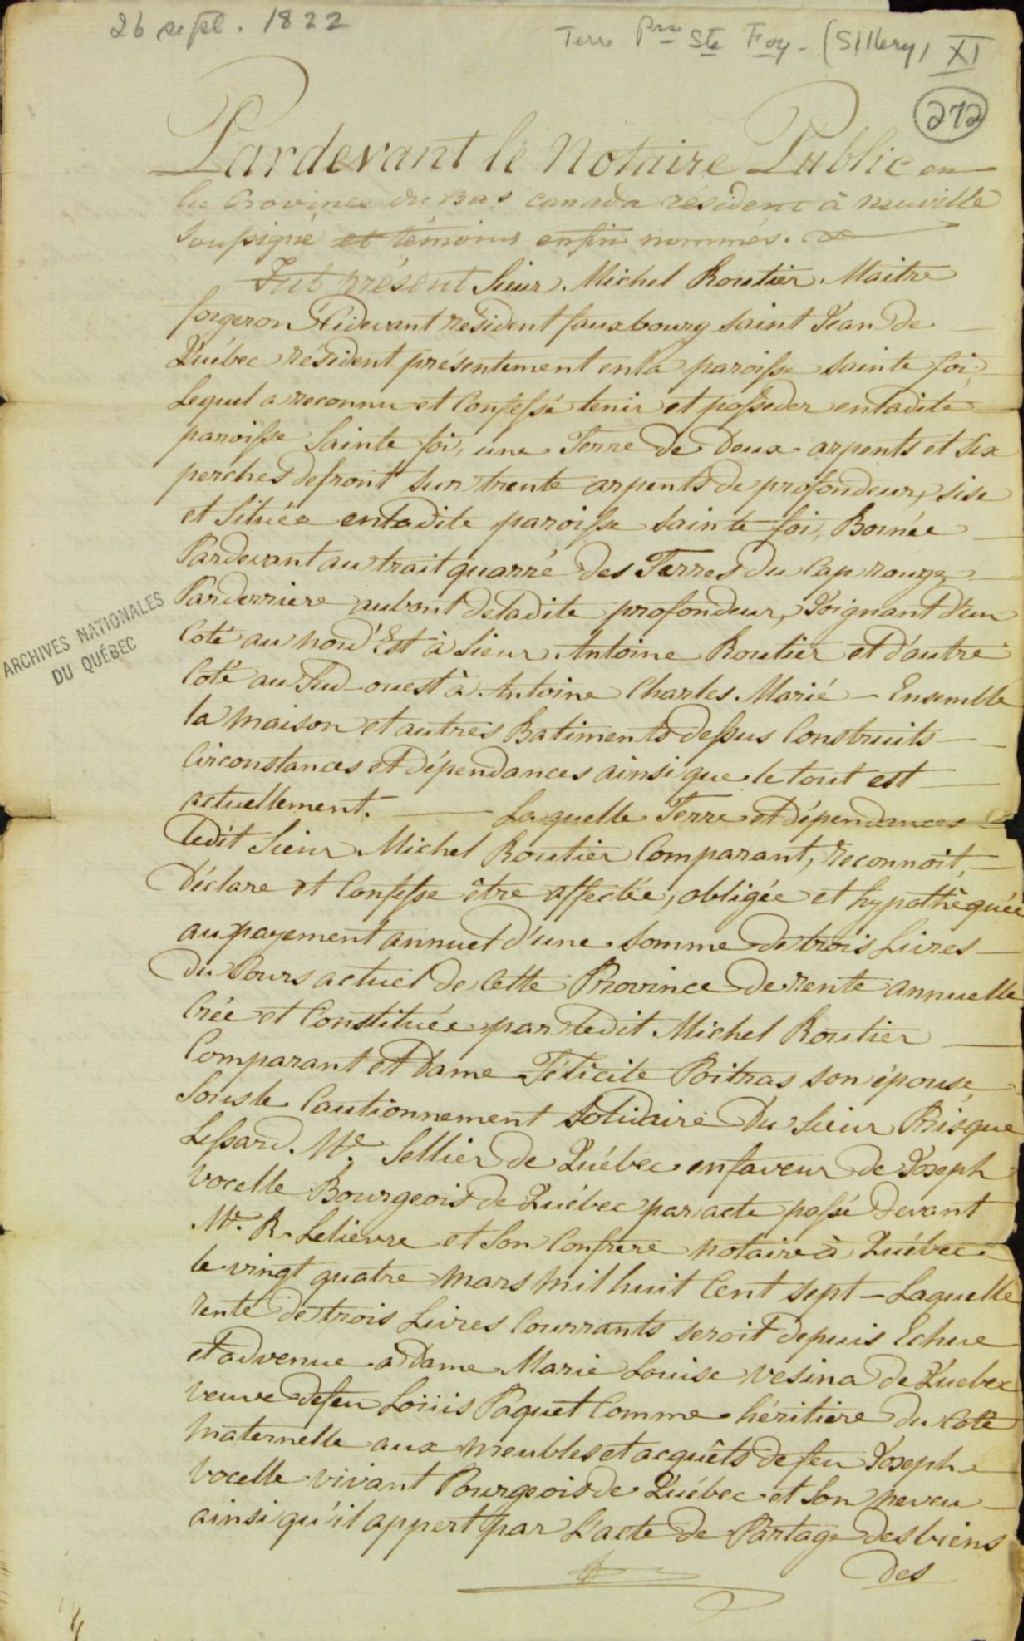 26 sept. 1822
Terre Prse Ste Foy - (Sillery) XI
272
Pardevant le Notaire Public en
la Province du Bas Canada résident à Neuville
Soussigné et témoins enfin nommés.
Fut présent Sieur Michel Routier Maitre
forgeron Cidevant résident fauxbourg Saint Jean de
Québec résident présentement enla paroisse Sainte foi
Lequel a reconnu et Confessé tenir et posseder entadite
paroisse Sainte foi, une Terre de Deux arpents et Six
perches defront sur trente arpents de profondeur, sise
et Située entadite paroisse Sainte foi, Bornée
Pardevant au trait quarré des Terres du Cap rouge
Parderriere aubout deladite profondeur, Joignant d'un
Coté au nord Est à Sieur Antoine Routier et d'autre
Coté au Sud-ouest à Antoine Charles Marié - Ensemble
la Maison et autres Batiments dessus Construits
Circonstances et dépendances ainsi que le tout est
actuellement. Laquelle Terre et dépendances
ledit Sieur Michel Routier Comparant, reconnoit,
Déclare et Confesse être affectée, obligée et hypothèquée
au payement annuel d'une Somme de trois Livres
du Cours actuel de Cette Province de rente annuelle
Crée et Constituée par ledit Michel Routier
Comparant et Dame Félicité Poitras son épouse,
Sousle Cautionnement Solidaire Du Sieur Prisque
Lessard Me. Sellier de Québec enfaveur de Joseph
Vocelle Bourgeois de Québec par acte passé devant
Mr. R. Lelievre et Son Confrere notaire à Québec
le vingt quatre mars mil huit Cent sept - Laquelle
rente de trois Livres Courrants seroit depuis Echue
et advenue a Dame Marie Louise Vesina de Quebec
veuve defeu Loüis Paquet Comme héritiere du Coté
Maternelle aux meubles et acquêts de feu Joseph
Vocelle vivant Bourgeois de Québec et Son neveu
ainsi qu'il appert par L'acte de Partage des biens
des
ARCHIVES NATIONALES
DU QUÉBEC